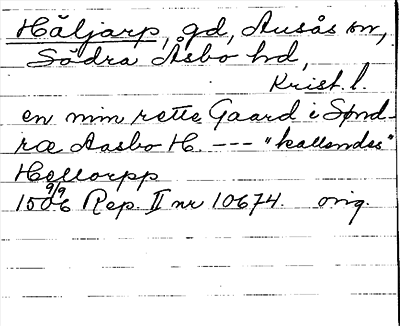 Häljarp, gd, Ausås sn,
Södra Åsbo hd,
Krist. l.
en min rette Gaard i Synd-
ræ Aasbo H. --- "kallendes"
Hellorpp
9/9
1506 Rep. II nr 10674. orig.